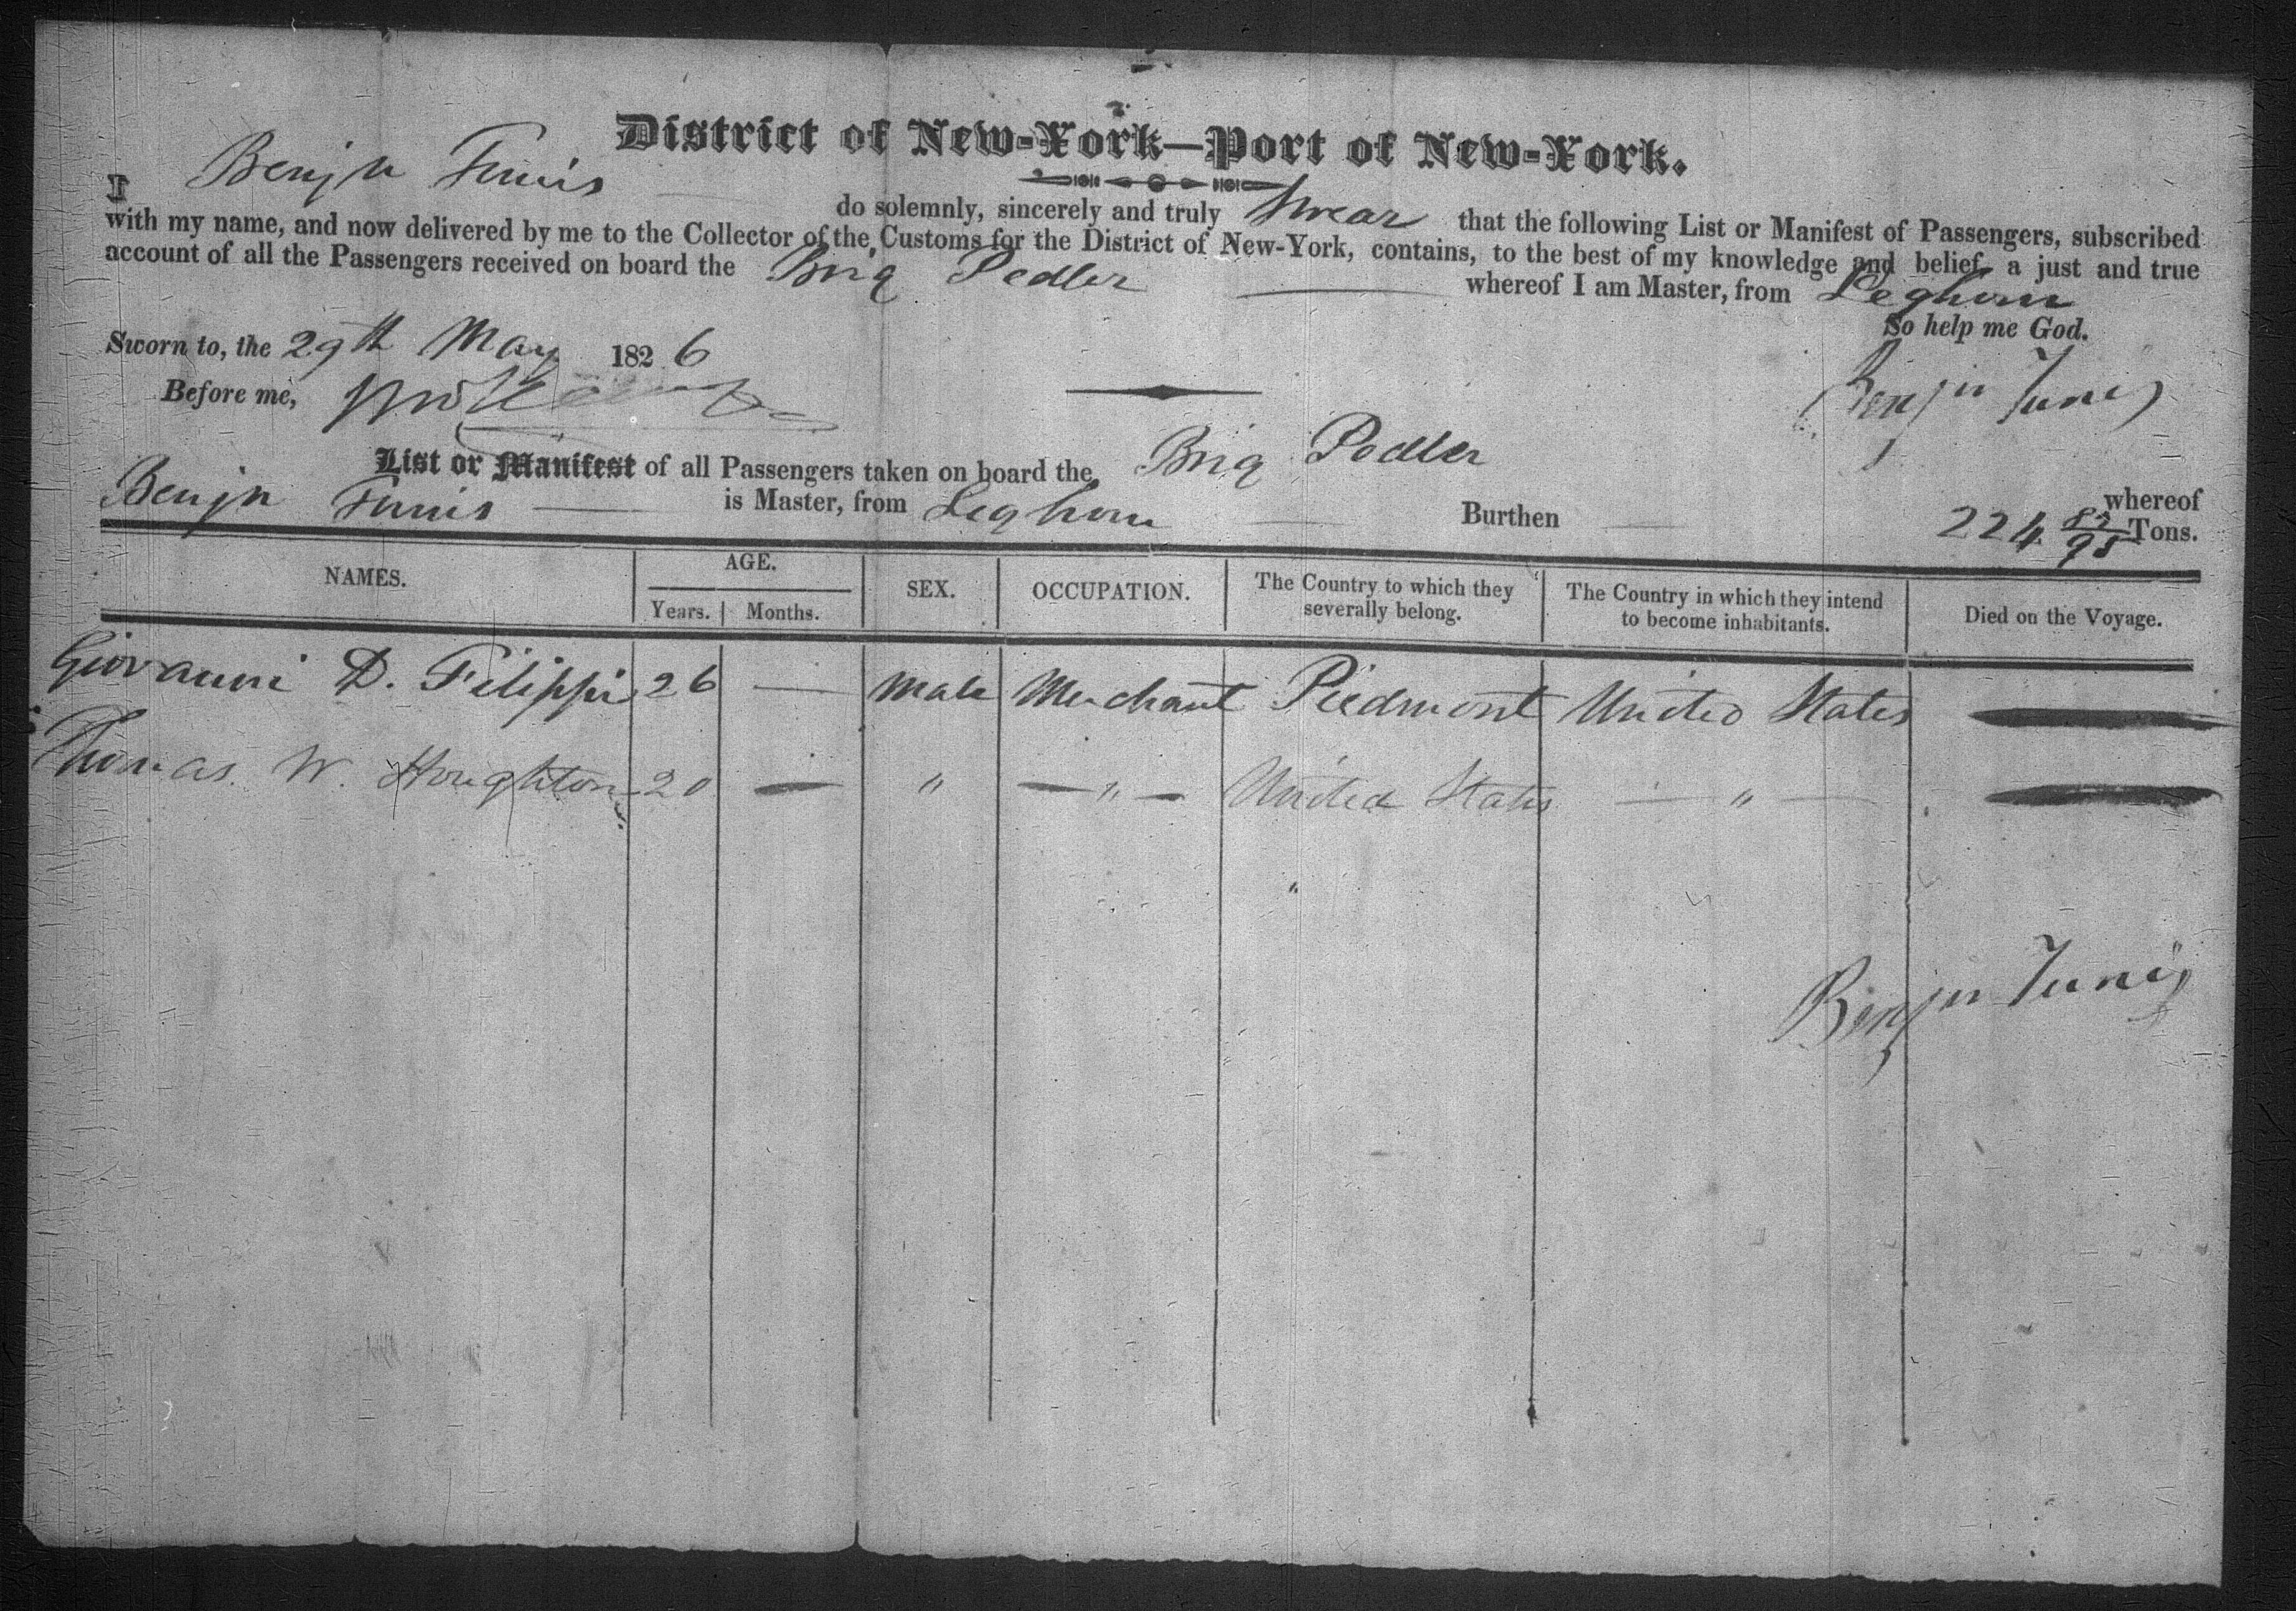 District of New-York—Port of New-York.
I Benjn Tunis do solemnly, sincerely and truly swear that the following List or Manifest of Passengers, subscribed
with my name, and now delivered by me to the Collector of the Customs for the District of New-York, contains, to the best of my knowledge and belief, a just and true
account of all the Passengers received on board the Brig Pedler whereof I am Master, from Leghorn
So help me God.
Sworn to, the 29th May 1826
Before me,
Benjn Tunis
List or Manifest of all Passengers taken on board the Brig Pedler whereof
Benjn Tunis is Master, from Leghorn Burthen 224 Tons.
NAMES. AGE. SEX. OCCUPATION. The Country to which they severally belong. The Country in which they intend to become inhabitants. Died on the Voyage.
Years. Months.
Giovanni D. Filippi 26 — Male Merchant Piedmont United States —
Thomas W. Houghton 20 — " — " — United States — " — —
Benjn Tunis